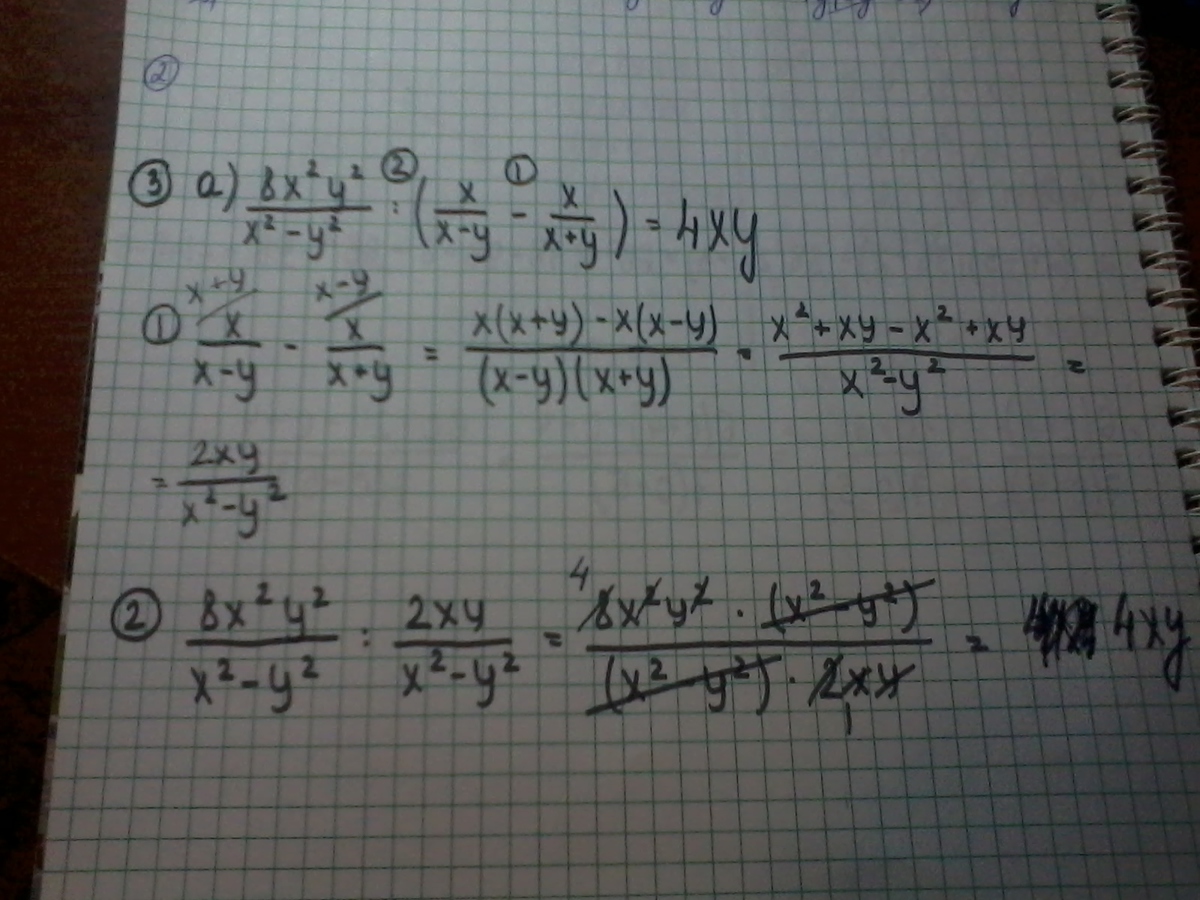 ②
③ а) 8x²y² / (x² − y²) :② (x / (x−y) −① x / (x+y)) = 4xy
① x+y / x / (x−y) − x−y / x / (x+y) = (x(x+y) − x(x−y)) / ((x−y)(x+y)) = (x² + xy − x² + xy) / (x² − y²) =
= 2xy / (x² − y²)
② 8x²y² / (x² − y²) : 2xy / (x² − y²) = 4 8x²y² · (x² − y²) / ((x² − y²) · 2xy 1) = 4xy